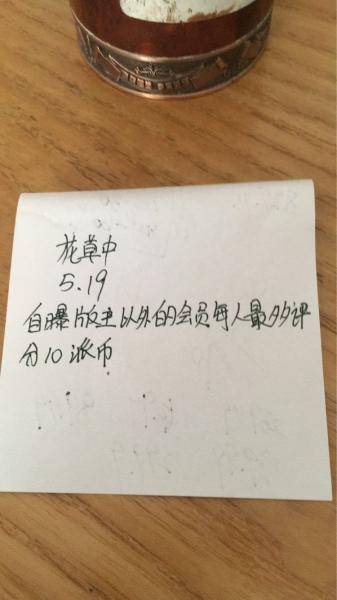 花草中
5.19
自曝版主以外的会员每人最多评
分10派币